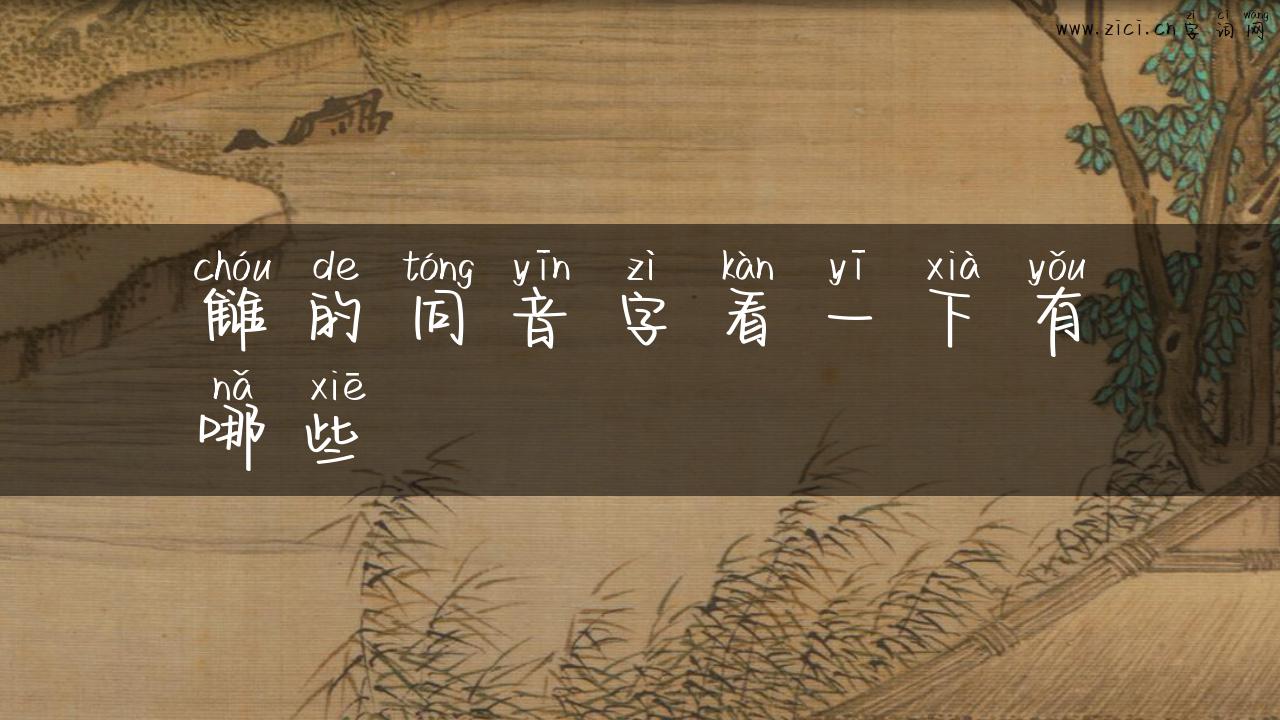 zì cí wǎng
www.zici.cn字词网
chóu de tóng yīn zì kàn yī xià yǒu
雠的同音字看一下有
nǎ xiē
哪些